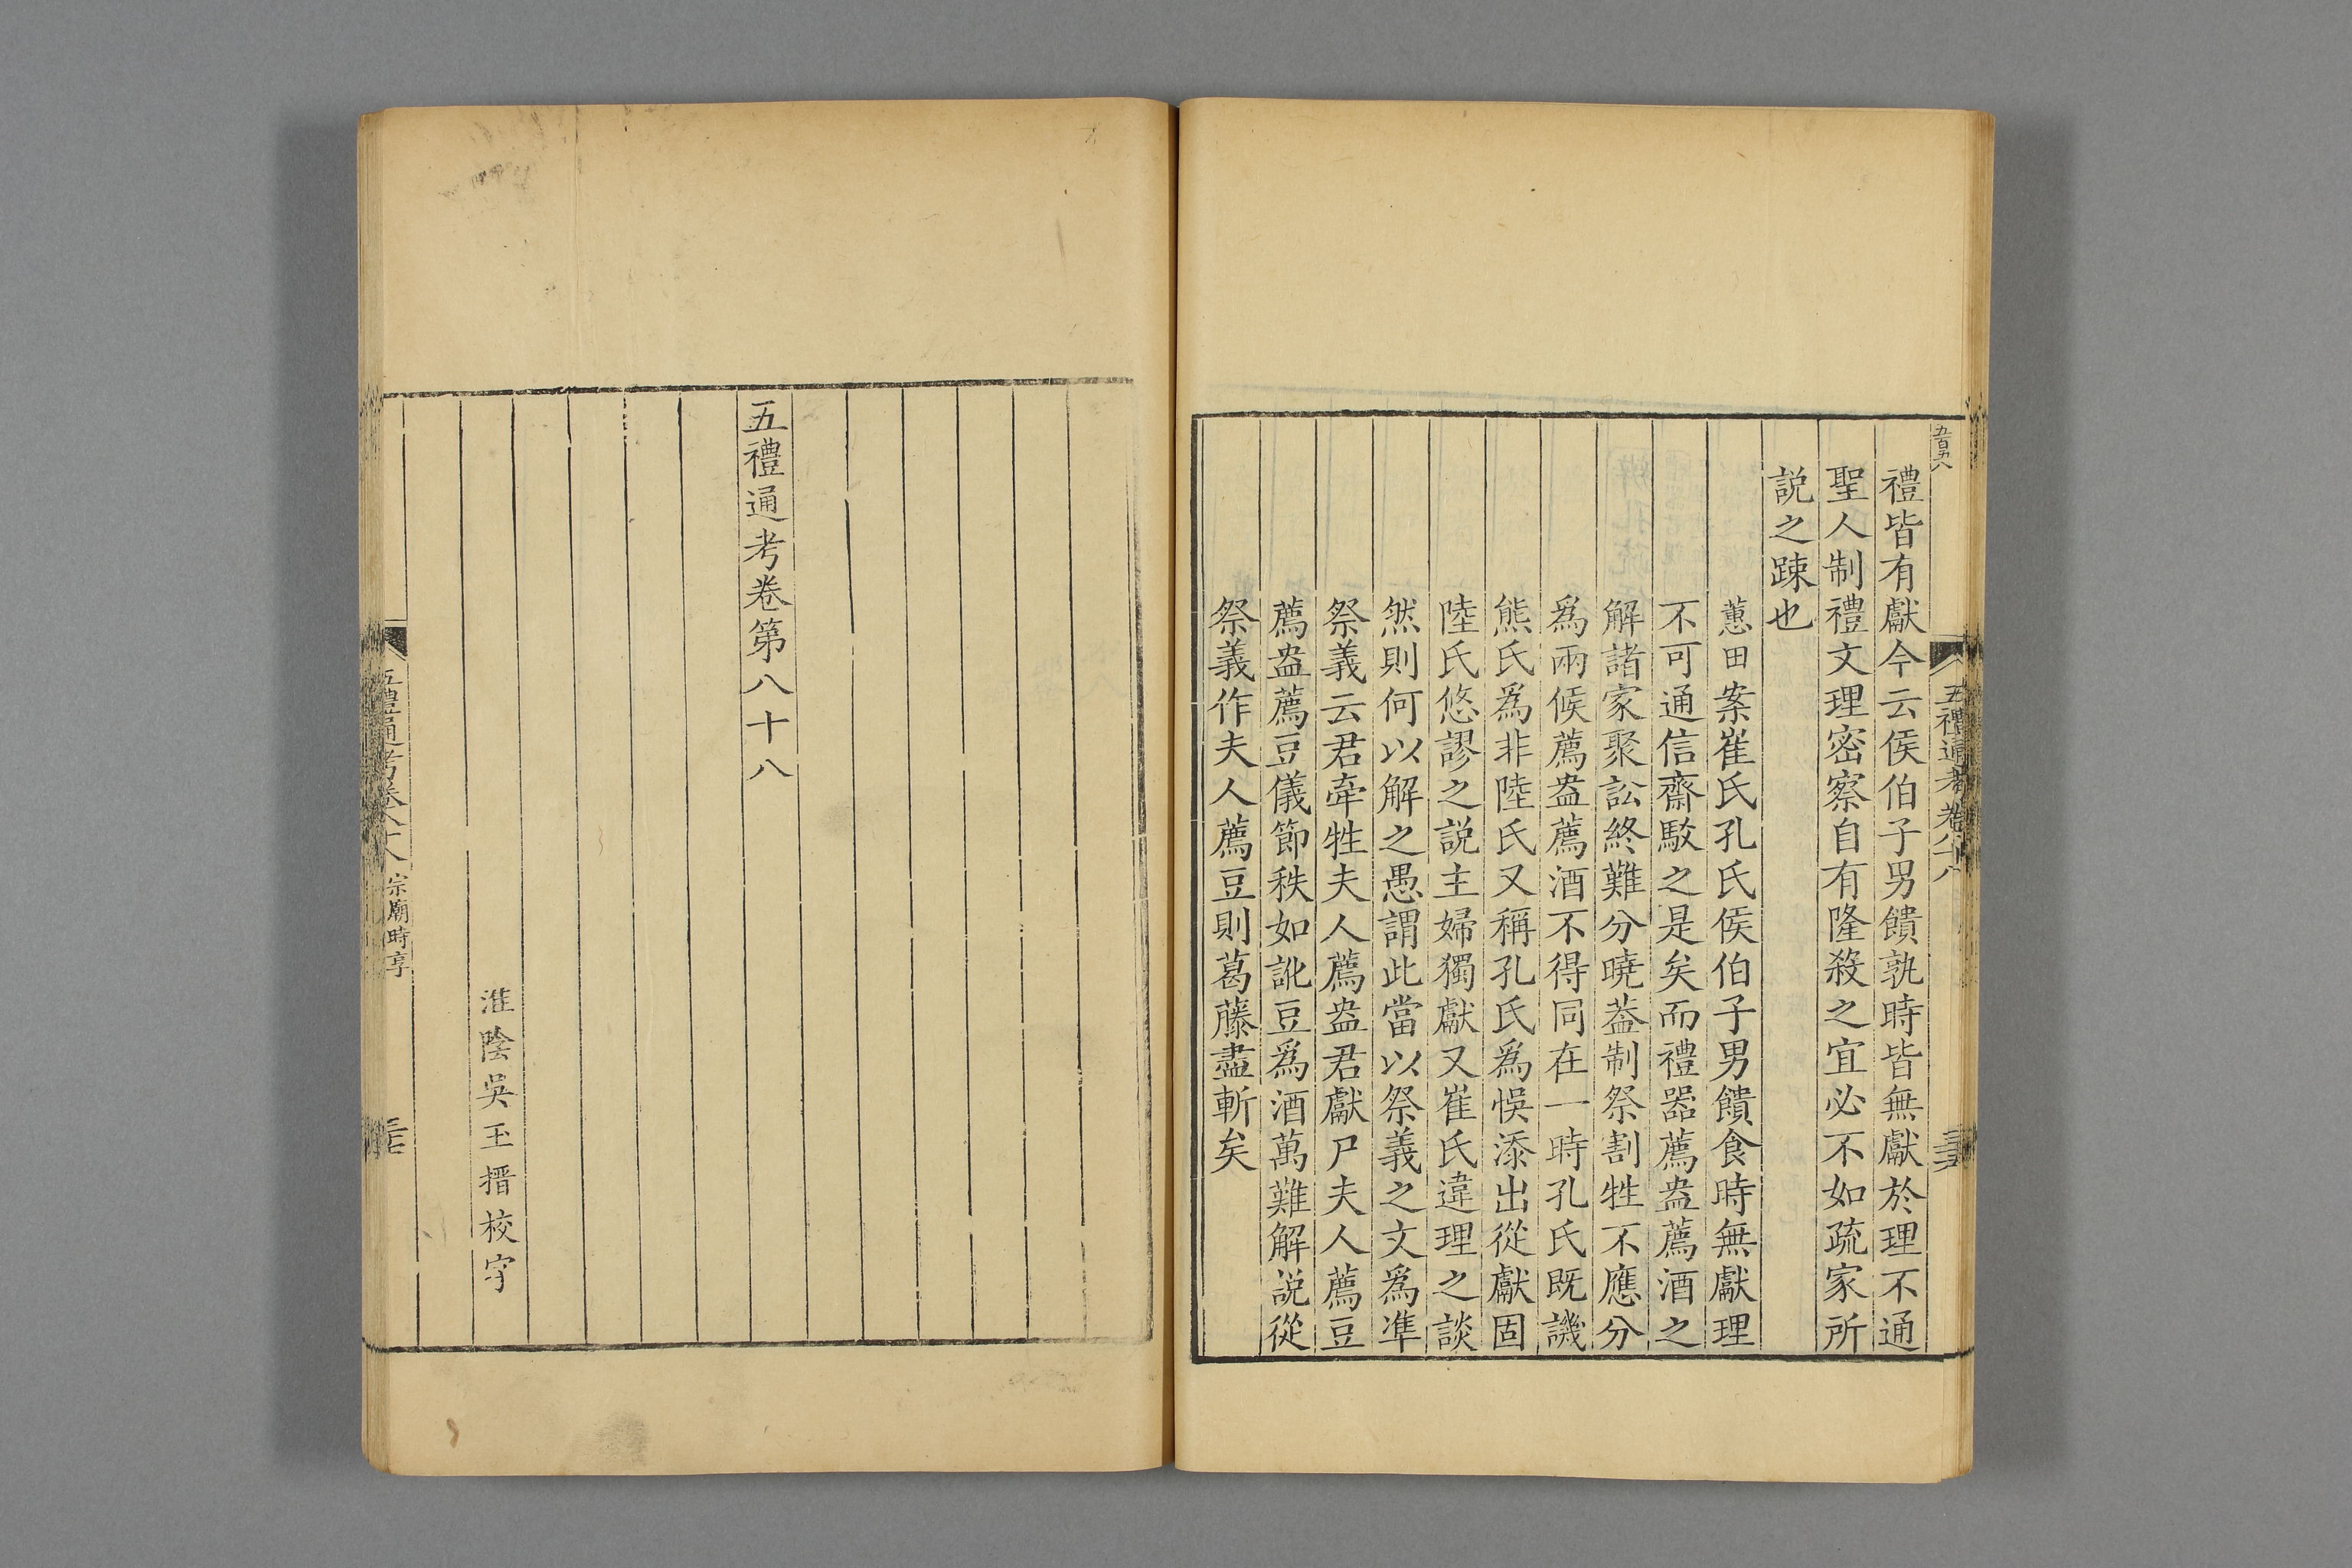 禮皆有獻今云侯伯子男饋孰時皆無獻於理不通
聖人制禮文理密察自有隆殺之宜必不如疏家所
説之踈也
蕙田案崔氏孔氏侯伯子男饋食時無獻理
不可通信齋駁之是矣而禮器薦盎薦酒之
解諸家聚訟終難分曉葢制祭割牲不應分
爲兩候薦盎薦酒不得同在一時孔氏既譏
熊氏爲非陸氏又稱孔氏爲悞添出從獻固
陸氏悠謬之説主婦獨獻又崔氏違理之談
然則何以解之愚謂此當以祭義之文爲準
祭義云君牽牲夫人薦盎君獻尸夫人薦豆
薦盎薦豆儀節秩如訛豆爲酒萬難解説從
祭義作夫人薦豆則葛藤盡斬矣
五禮通考卷八十八
五禮通考卷第八十八
淮陰吳玉搢校字
五禮通考卷八十八 宗廟時享